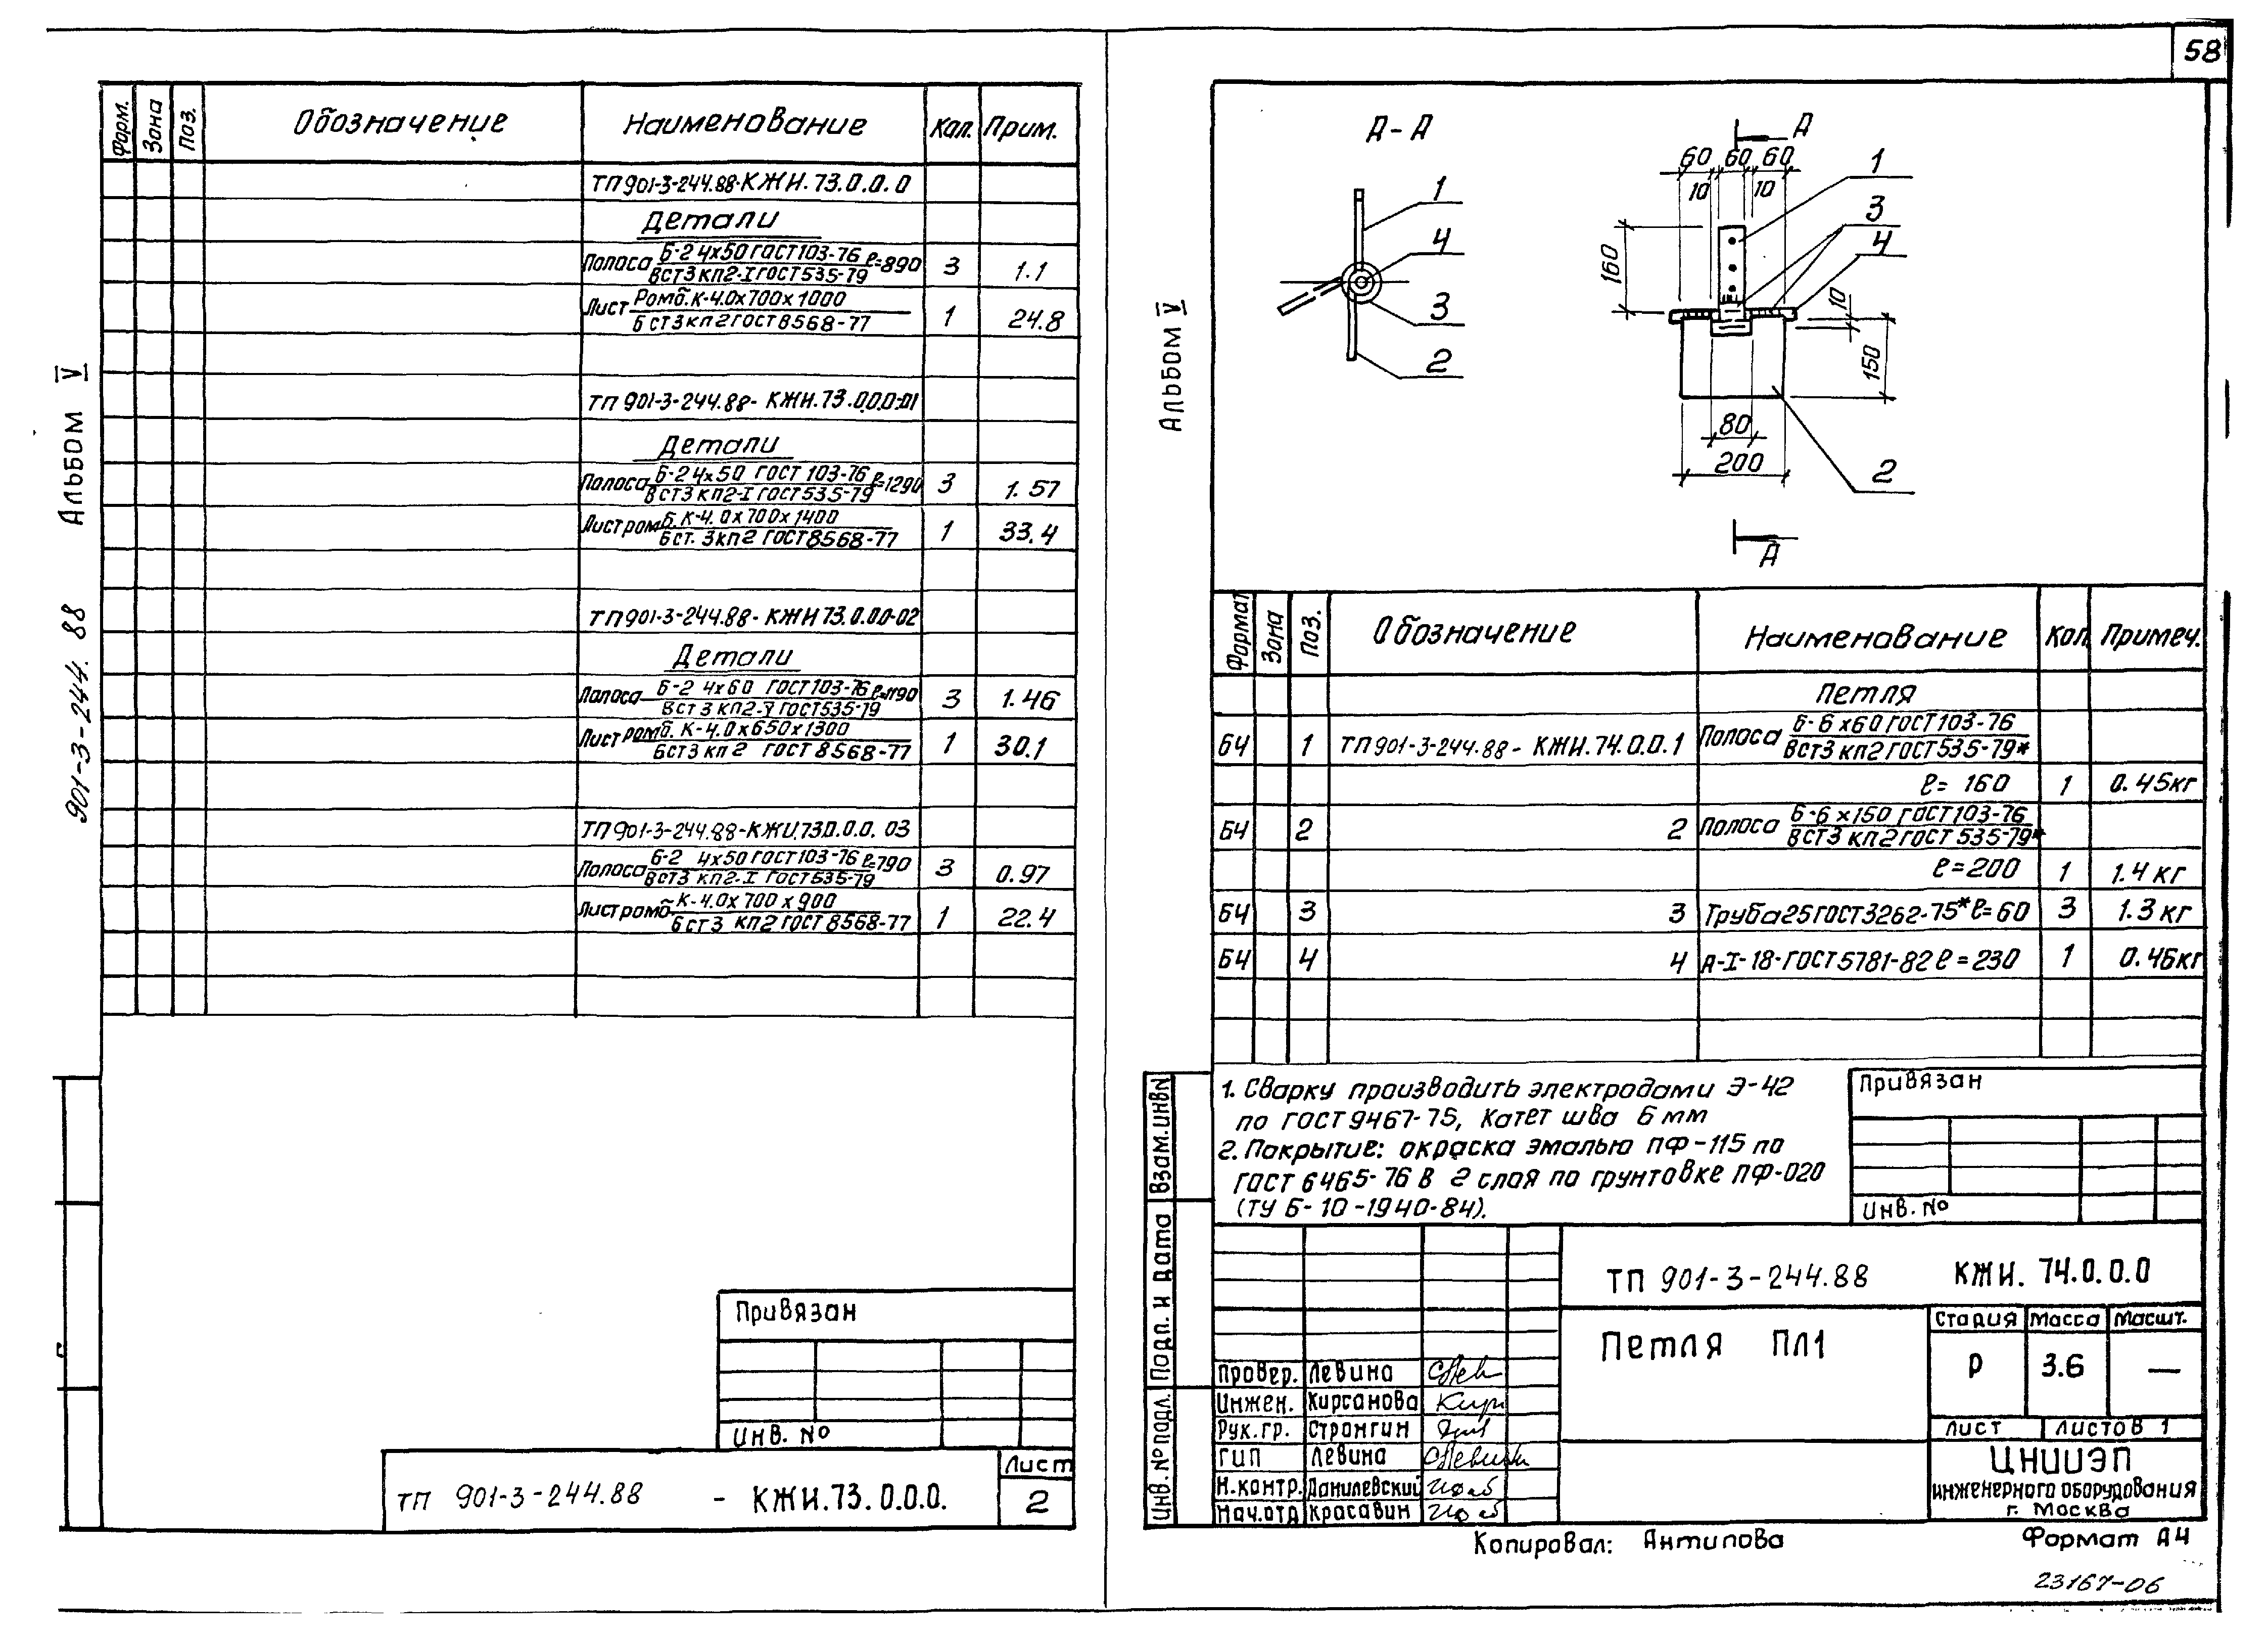 58
Альбом V
901-3-244.88
Форм. Зона Поз. Обозначение Наименование Кол. Прим.
ТП901-3-244.88-КЖИ.73.0.0.0
Детали
Полоса Б-2 4х50 ГОСТ103-76 ℓ=890 3 1.1
ВСТ3кп2-I ГОСТ535-79
Лист Ромб.К-4.0х700х1000 1 24.8
БСТ3кп2 ГОСТ8568-77
ТП 901-3-244.88- КЖИ.73.0.0.0-01
Детали
Полоса Б-2 4х50 ГОСТ 103-76 ℓ=1290 3 1.57
ВСТ3 кп2-I ГОСТ535-79
Лист ромб. К-4.0х700х1400 1 33.4
Бст.3кп2 ГОСТ8568-77
ТП901-3-244.88- КЖИ 73.0.0.0-02
Детали
Полоса Б-2 4х60 ГОСТ103-76 ℓ=1190 3 1.46
ВСТ3 кп2-I ГОСТ535-79
Лист ромб. К-4.0х650х1300 1 30.1
БСТ3 кп2 ГОСТ 8568-77
ТП901-3-244.88-КЖИ.73.0.0.0.03
Полоса Б-2 4х50 ГОСТ103-76 ℓ=790 3 0.97
ВСТ3 кп2-I ГОСТ535-79
Лист ромб К-4.0х700х900 1 22.4
БСТ3 кп2 ГОСТ 8568-77
Привязан
Инв. №
ТП 901-3-244.88 - КЖИ.73.0.0.0.
Лист
2
Альбом V
А-А
1
4
3
2
А
60 60 60
10 10
1
3
4
160
10
150
80
200
2
А
Формат Зона Поз. Обозначение Наименование Кол. Примеч.
Петля
БЧ 1 ТП901-3-244.88- КЖИ.74.0.0.1 Полоса Б-6х60 ГОСТ103-76
ВСТ3 кп2 ГОСТ535-79*
ℓ= 160 1 0.45кг
БЧ 2 2 Полоса Б-6х150 ГОСТ103-76
ВСТ3 кп2 ГОСТ 535-79*
ℓ=200 1 1.4 кг
БЧ 3 3 Труба25ГОСТ3262-75* ℓ=60 3 1.3 кг
БЧ 4 4 А-I-18-ГОСТ5781-82 ℓ=230 1 0.46кг
1. Сварку производить электродами Э-42
по ГОСТ9467-75, Катет шва 6мм
2. Покрытие: окраска эмалью ПФ-115 по
ГОСТ 6465-76 в 2 слоя по грунтовке ПФ-020
(ТУ 6-10-1940-84).
Привязан
Инв. №
Взам.инв№
Подп. и дата
Инв. №подл.
ТП 901-3-244.88 КЖИ. 74.0.0.0
Петля ПЛ1
Стадия Масса Масшт.
Р 3.6 —
Лист Листов 1
Провер. Левина
Инжен. Кирсанова
Рук.гр. Стронгин
ГИП Левина
Н.контр. Данилевский
Нач.отд Красавин
ЦНИИЭП
инженерного оборудования
г. Москва
Копировал: Антипова Формат А4
23167-06